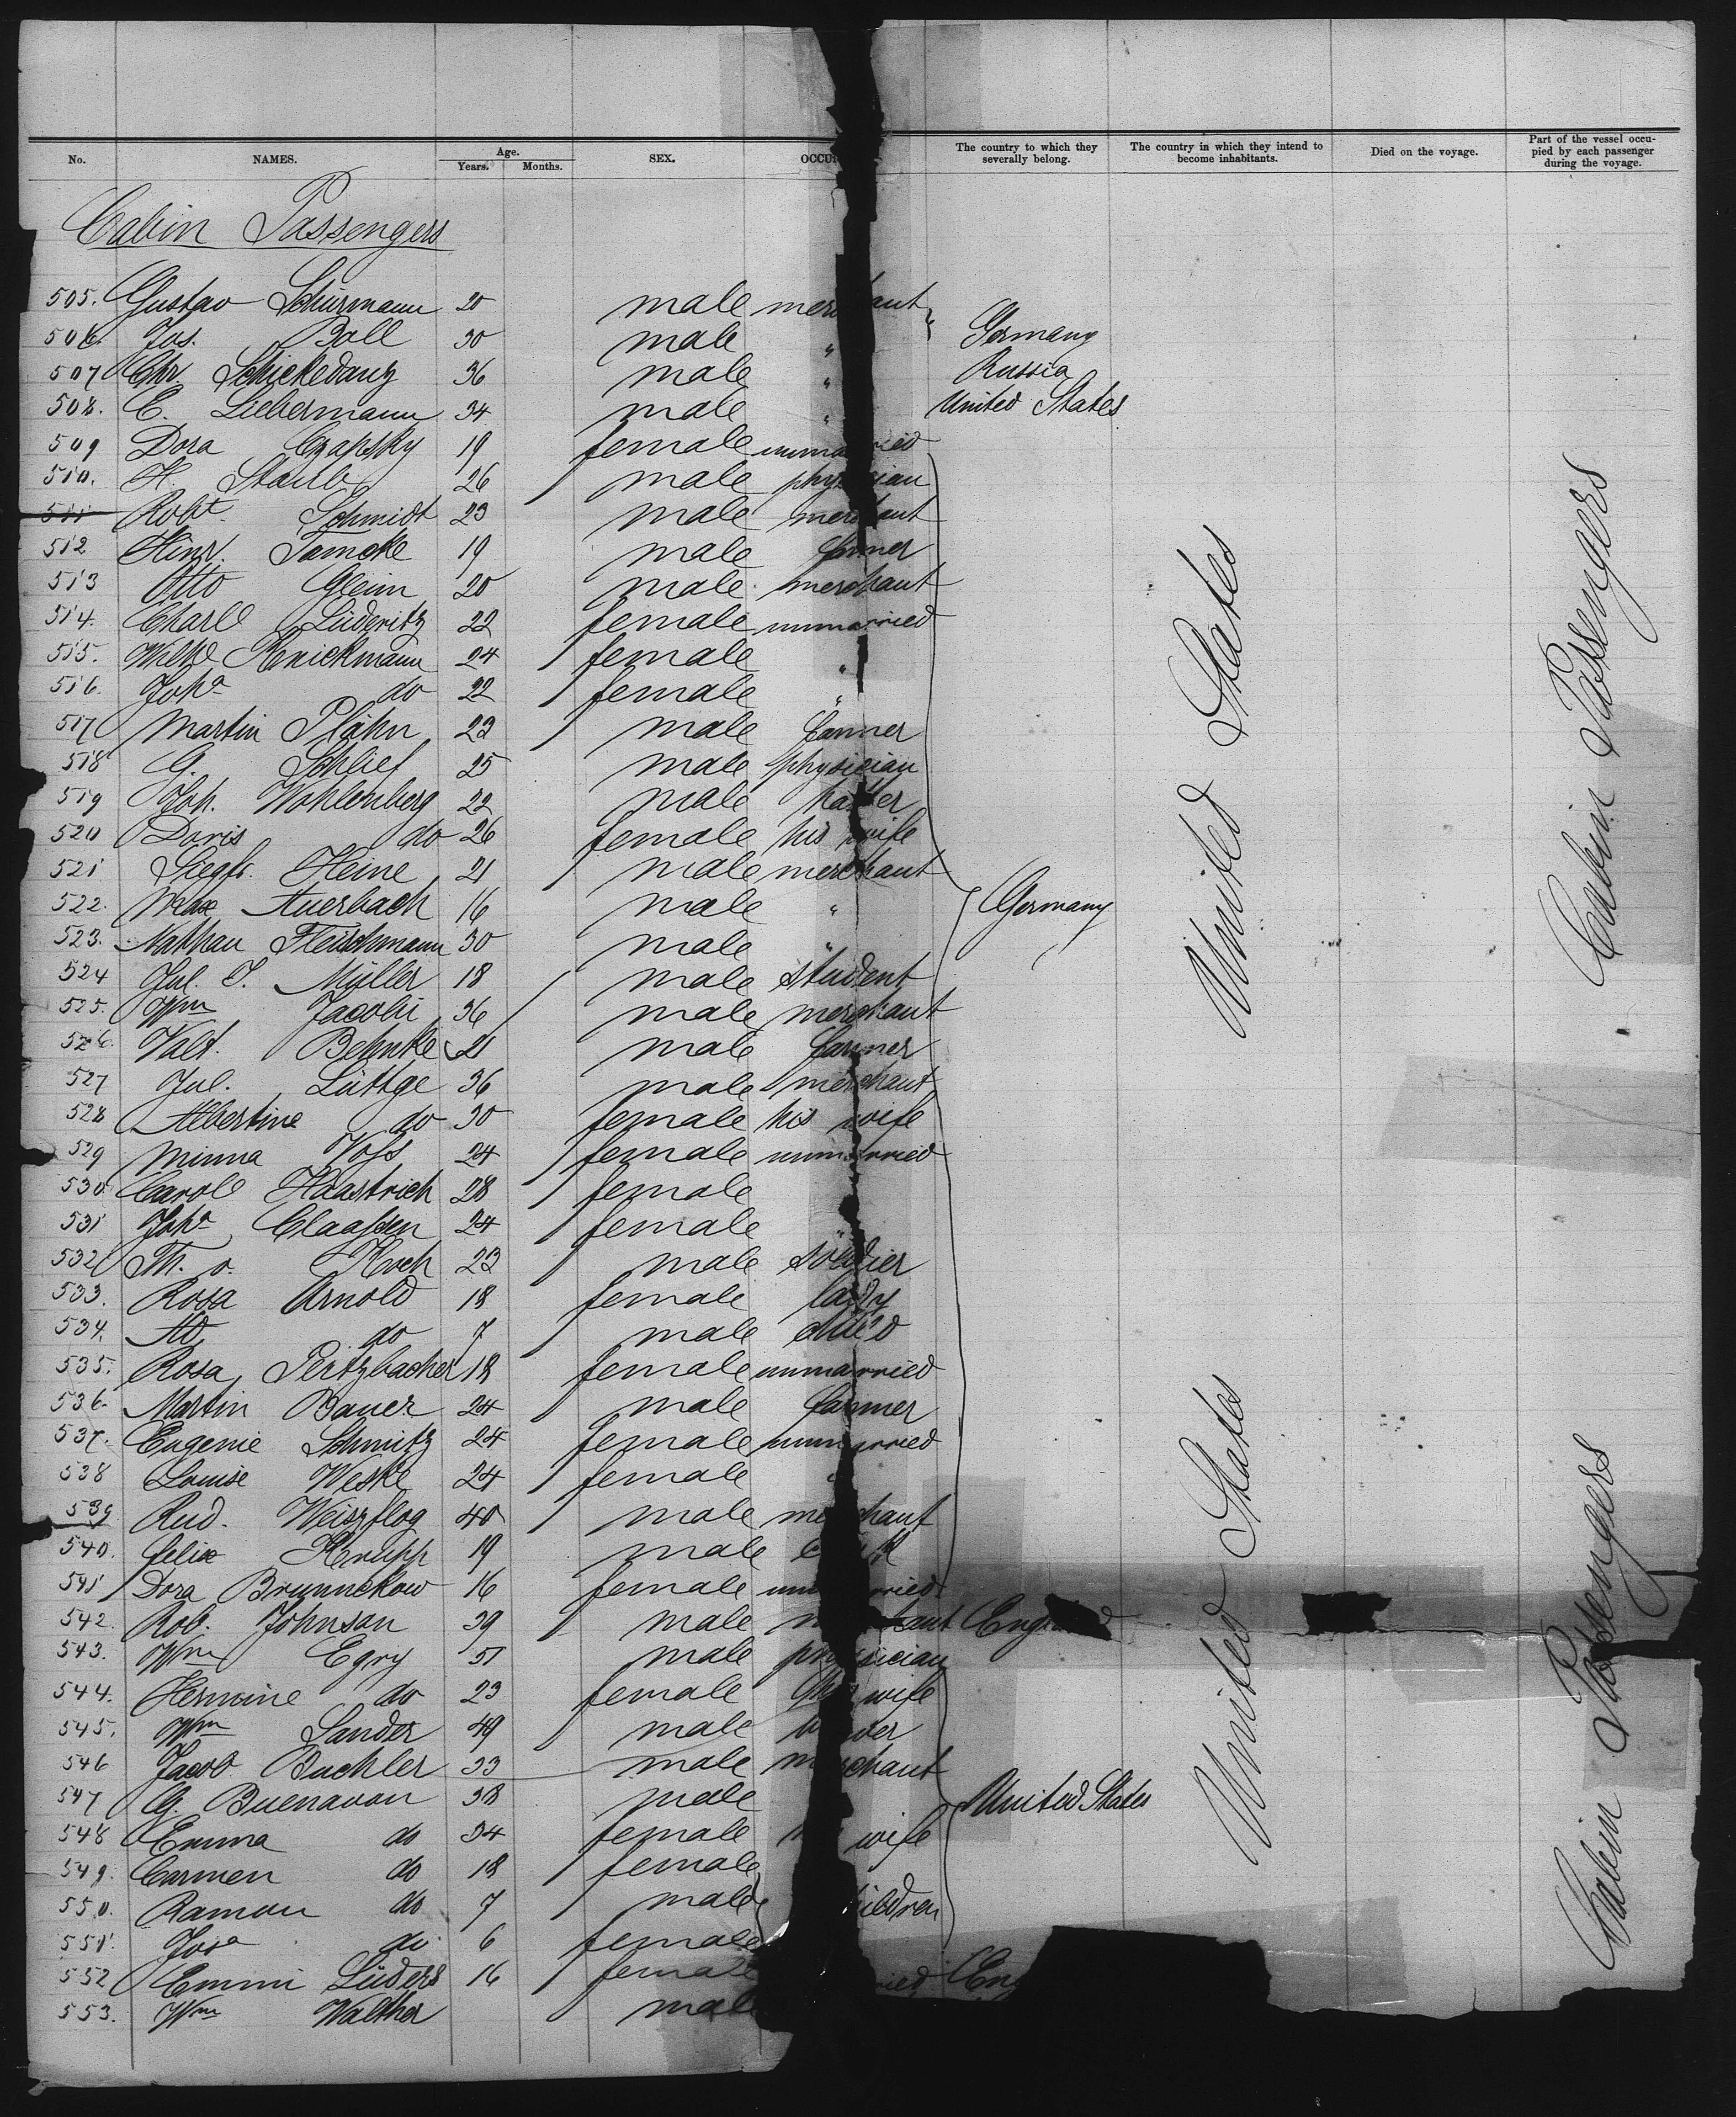 No. NAMES. Age. Years. Months. SEX. OCCU The country to which they severally belong. The country in which they intend to become inhabitants. Died on the voyage. Part of the vessel occupied by each passenger during the voyage.
Cabin Passengers
505. Gustav Schürmann 20 male merchant
506. Jos. Boll 30 male " Germany
507 Chr. Schickedanz 36 male " Russia
508. E. Liebermann 34 male " United States
509 Dora Czapsky 19 female unmarried
510. H. Staub 26 male physician
511 Robt. Schmidt 23 male merchant
512 Hinr. Tamcke 19 male farmer
513 Otto Gleim 20 male merchant
514. Charl Lüderitz 22 female unmarried
515. Wilhe Knickmann 24 female "
516. Joha do 22 female "
517 Martin Plähn 23 male farmer
518 G. Schlief 25 male physician
519 Joh. Wohlenberg 22 male
520 Doris do 26 female his wife
521 Siegfr. Heine 21 male merchant
522. Max Auerbach 16 male " Germany
523. Nathan Fleischmann 30 male "
524 Jul. I. Müller 18 male student
525. Wm Jacobi 36 male merchant
526. Valt. Behnke 21 male farmer
527 Jul. Lüttge 36 male merchant
528 Albertine do 30 female his wife
529 Minna Voss 24 female unmarried
530 Carol Haastrich 28 female
531 Joha Claassen 24 female "
532 Th. v. Koch 23 male soldier
533. Rosa Arnold 18 female lady
534. Ad. do 7 male child
535. Rosa Pertzbacher 18 female unmarried
536. Martin Bauer 24 male farmer
537. Eugenie Schmitz 24 female unmarried
538 Louise Weske 24 female "
539 Rud. Weiszflog 40 male merchant
540. Felix Krupp 19 male
541 Dora Brunnckow 16 female unmarried
542. Rob. Johnson 39 male merchant England
543. Wm Egry 51 male physician
544. Hermine do 23 female his wife
545. Wm Sander 49 male
546 Jacob Buchler 33 male merchant
547 G. Buenavon 38 male United States
548 Emma do 34 female wife
549. Carmen do 18 female
550. Ramon do 7 male children
551. Josa do 6 female
552 Emmi Lüders 16 female ried Eng
553. Wm Walther male
United States
United States
Cabin Passengers
Cabin Passengers